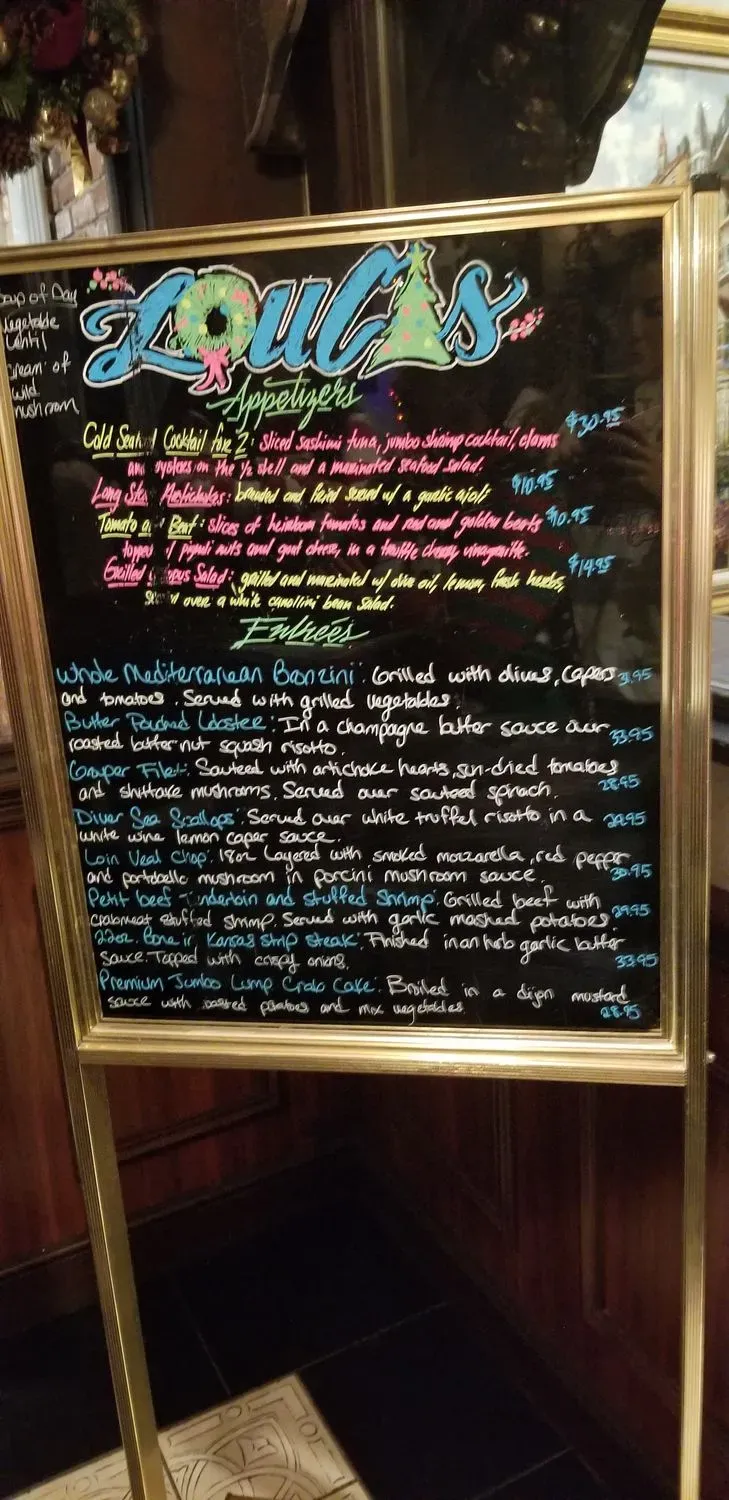 Loucas
Soup of Day
Vegetable
Lentil
cream of
wild
mushroom
Appetizers
Cold Seafood Cocktail for 2: sliced sashimi tuna, jumbo shrimp cocktail, clams $30.95
and oysters on the ½ shell and a marinated seafood salad.
Long Stem Artichokes: breaded and fried served w/ a garlic aioli $10.95
Tomato and Beet: slices of heirloom tomatos and red and golden beets $10.95
topped w/ pignoli nuts and goat cheese, in a truffle cherry vinaigrette.
Grilled Octopus Salad: grilled and marinated w/ olive oil, lemon, fresh herbs, $14.95
served over a white cannllini bean salad.
Entreés
Whole Mediterranean Bronzini: Grilled with olives, capers 31.95
and tomatoes. Served with grilled vegetables.
Butter Poached Lobster: In a champagne butter sauce over 33.95
roasted butternut squash risotto.
Grouper Filet: Sauteed with artichoke hearts, sun-dried tomatoes
and shittake mushrooms. Served over sauteed spinach. 28.95
Diver Sea Scallops: Served over white truffel risotto in a 29.95
white wine lemon caper sauce.
Loin Veal Chop: 18oz Layered with smoked mozzarella, red pepper
and portobello mushroom in porcini mushroom sauce. 30.95
Petit beef Tenderloin and stuffed Shrimp: Grilled beef with
crabmeat stuffed shrimp. Served with garlic mashed potatoes. 29.95
22oz. Bone in Kansas strip steak: Finished in an herb garlic butter
sauce. Topped with crispy onions. 33.95
Premium Jumbo Lump Crab Cake: Broiled in a dijon mustard
sauce with roasted potatoes and mix vegetables. 28.95